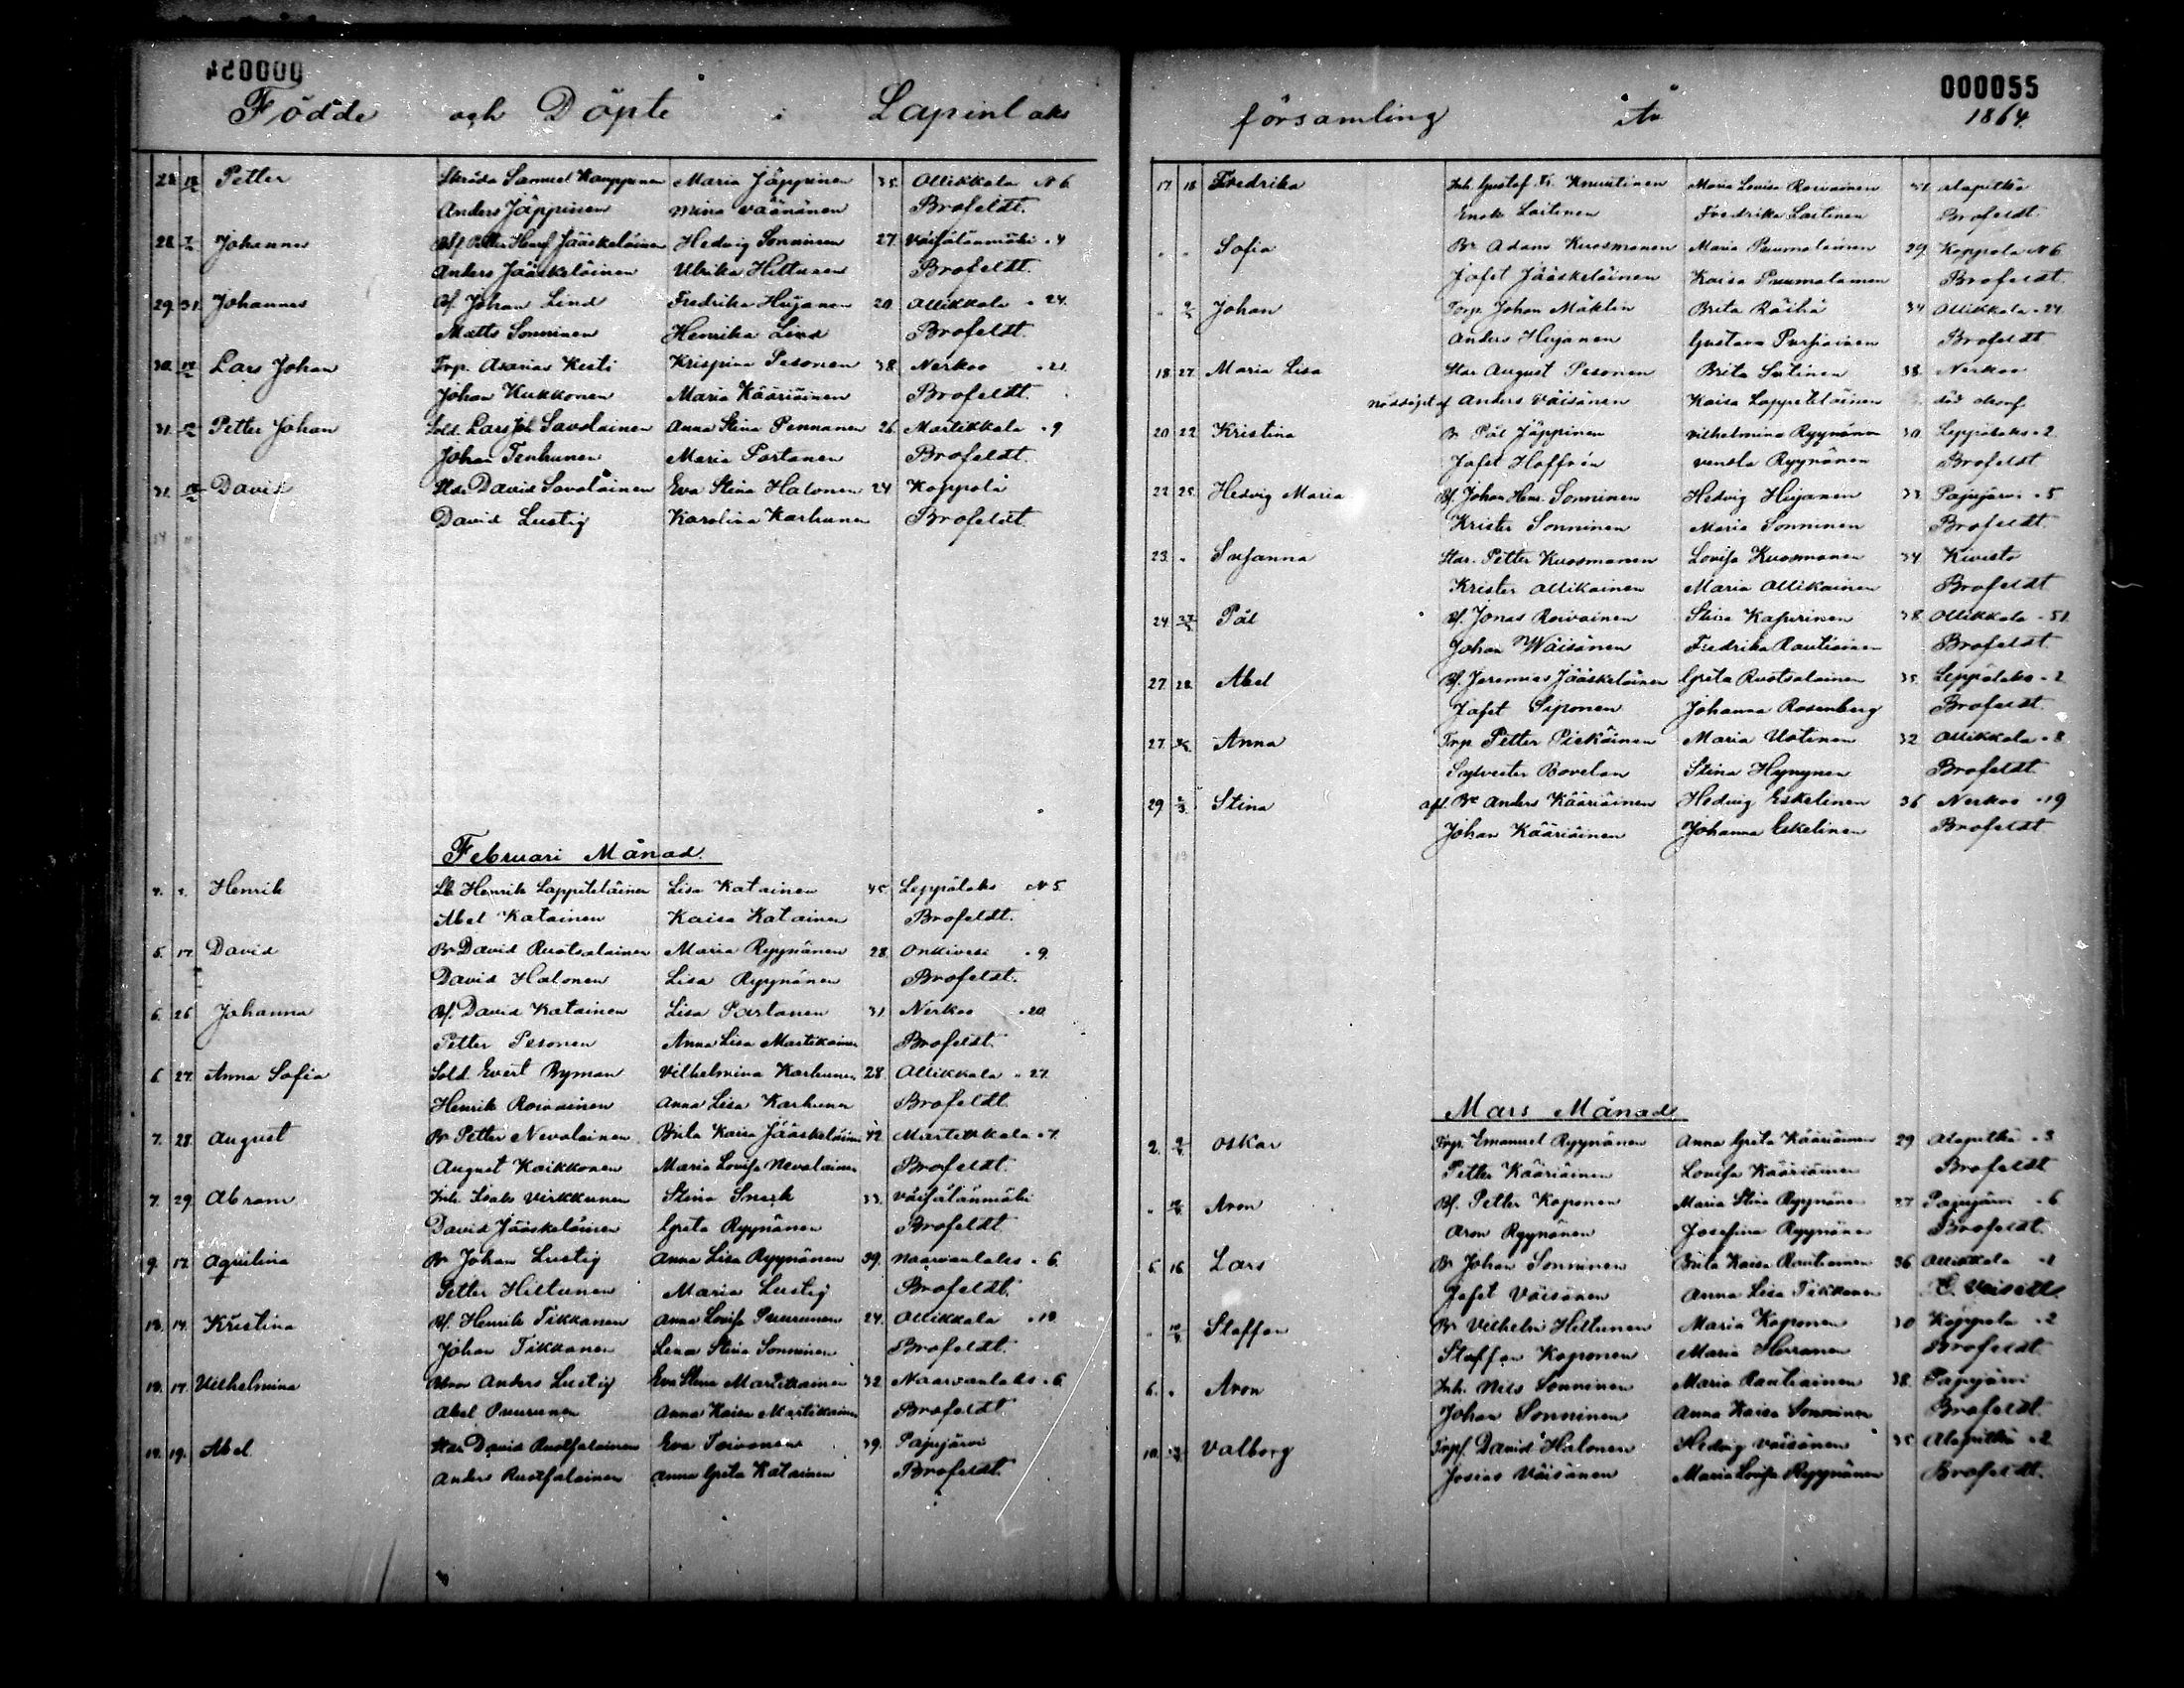 000054
Födde och Döpte i Lapinlaks
Petter Samuel Kauppinen Maria Jäppinen 35. Ollikkala N 6.
Anders Jäppinen Mina Väänänen Brofeldt.
28. Johanna Bf. Petter Henr. Jääskeläinen Hedvig Sonninen 27. Väisälänmäki " 4
Anders Jääskeläinen Ulrika Hiltunen Brofeldt.
29. 31. Johannes Bf. Johan Lind Fredrika Hujanen 20. Ollikkala " 24.
Matts Sonninen Henrika Lind Brofeldt.
30. Lars Johan Trp. Asarias Kesti Krispina Pesonen 38. Nerkoo " 21.
Johan Kukkonen Maria Kääriäinen Brofeldt.
31. Petter Johan Sold. Lars Joh. Savolainen Anna Stina Pennanen 26. Martikkala " 9
Johan Tenhunen Maria Partanen Brofeldt.
31. David David Savolainen Eva Stina Halonen 24 Koppola
David Lustig Karolina Karhunen Brofeldt.
Februari Månad.
Henrik Henrik Lappeteläinen Lisa Katainen 45. Leppälaks N 5.
Abel Katainen Kaisa Katainen Brofeldt.
5. 17. David Br David Ruotsalainen Maria Ryynänen 28. Onkivesi " 9.
David Halonen Lisa Ryynänen Brofeldt.
6. 26 Johanna Bf. David Katainen Lisa Partanen 31. Nerkoo " 20.
Petter Pesonen Anna Lisa Martikainen Brofeldt.
6. 27. Anna Sofia Sold. Evert Ryman Vilhelmina Karhunen 28. Ollikkala " 27.
Henrik Roivainen Anna Lisa Karhunen Brofeldt.
7. 28. August Br Petter Nevalainen Brita Kaisa Jääskeläinen 42. Martikkala " 7.
August Kaikkonen Maria Lovisa Nevalainen Brofeldt.
7. 29. Abram Inh. Isaks Virkkunen Stina Snech 33. Väisälänmäki
David Jääskeläinen Greta Ryynänen Brofeldt.
9. 17. Aquilina Br Johan Lustig Anna Lisa Ryynänen 39. Naarvanlaks " 6.
Petter Hiltunen Maria Lustig Brofeldt.
13. 14. Kristina Bf. Henrik Tikkanen Anna Lovisa Puurunen 24. Ollikkala " 10.
Johan Tikkanen Lena Stina Sonninen Brofeldt.
13. 17. Vilhelmina Anders Lustig Eva Stina Martikainen 32 Naarvanlaks " 6.
Abel Puurunen Anna Kaisa Martikainen Brofeldt.
19. Abel David Ruotsalainen Eva Toivonen 39. Pajujärvi
Anders Ruotsalainen Anna Greta Katainen Brofeldt.
000055
församling år 1864.
17. 18. Fredrika Inh. Gustaf Fr. Knuutinen Maria Lovisa Roivainen Alapitkä
Enok Laitinen Fredrika Laitinen Brofeldt.
" " Sofia Br Adam Kuosmanen Maria Puumalainen 29. Koppola N 6
Jafet Jääskeläinen Kaisa Puumalainen Brofeldt.
" Johan Torp. Johan Mäklin Brita Räihä 34 Ollikkala " 24
Anders Hujanen Gustava Purjainen Brofeldt
18. 27. Maria Lisa August Pesonen Brita Sutinen 38. Nerkoo
nöddöpt af Anders Väisänen Kaisa Lappeteläinen
20 22 Kristina Br Pål Jäppinen Vilhelmina Ryynänen 30. Leppälaks " 2.
Jafet Hoffrén Vendla Ryynänen Brofeldt
22 25. Hedvig Maria Bf. Johan Henr. Sonninen Hedvig Hujanen 33. Pajujärvi " 5
Krister Sonninen Maria Sonninen Brofeldt.
23. " Susanna Petter Kuosmanen Lovisa Kuosmanen 34. Kivistö
Krister Ollikainen Maria Ollikainen Brofeldt
24. Pål Bf. Jonas Roivainen Stina Kaparinen 38. Ollikkala " 51.
Johan Wäisänen Fredrika Rautiainen Brofeldt.
27. 28. Abel Bf. Jeremias Jääskeläinen Greta Ruotsalainen 35. Leppälaks " 2
Jafet Siponen Johanna Rosenberg Brofeldt.
27. Anna Trp. Petter Pickäinen Maria Uotinen 32 Ollikkala " 8
Sylvester Bovelan Stina Hynynen Brofeldt.
29 2/3. Stina afl. Br Anders Kääriäinen Hedvig Eskelinen 36 Nerkoo " 19
Johan Kääriäinen Johanna Eskelinen Brofeldt
Mars Månad.
2. Oskar Trp. Emanuel Ryynänen Anna Greta Kääriäinen 29 Alapitkä " 3
Petter Kääriäinen Lovisa Kääriäinen Brofeldt
" Aron Bf. Petter Koponen Maria Stina Ryynänen 27 Pajujärvi " 6
Aron Ryynänen Josefina Ryynänen Brofeldt.
5. 16. Lars Br Johan Sonninen Brita Kaisa Rautiainen 36 Ollikkala
Jafet Väisänen Anna Lisa Tikkanen
" Staffan Br Vilhelm Hiltunen Maria Koponen 30 Koppola " 2
Staffan Koponen Maria Herranen Brofeldt
6. " Aron Inh. Nils Sonninen Maria Rautiainen 38. Pajujärvi
Johan Sonninen Anna Kaisa Sonninen Brofeldt.
10. Valborg Trpf. David Halonen Hedvig Väisänen 35 Alapitkä " 2
Josias Väisänen Maria Lovisa Ryynänen Brofeldt.